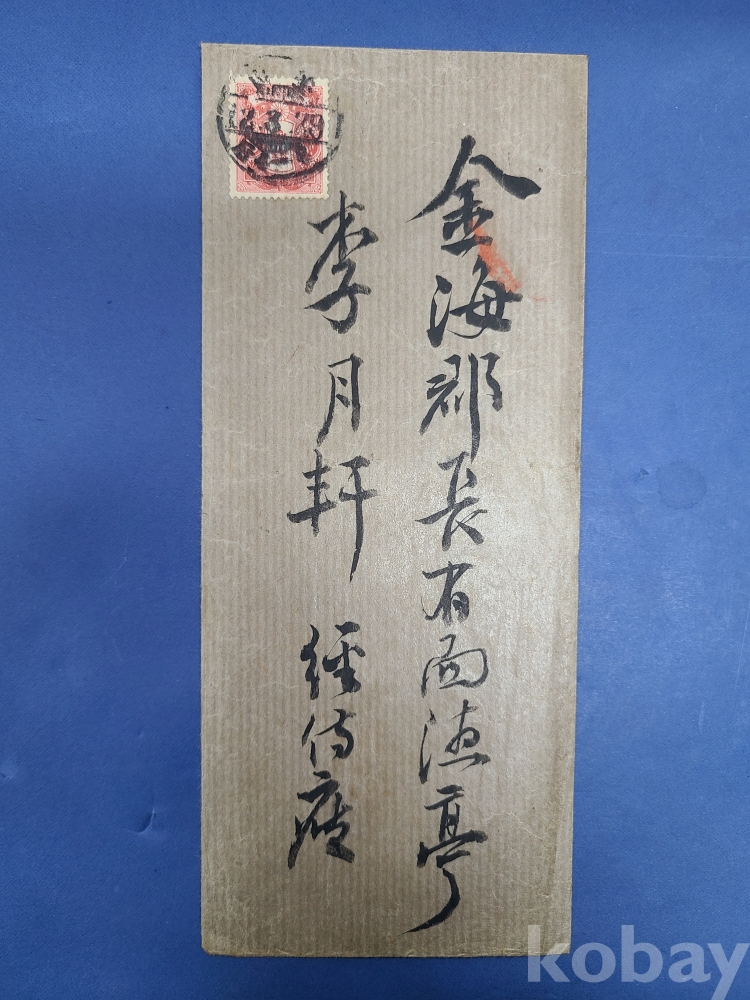 金海郡長有面德亭
李月軒 經侍
kobay